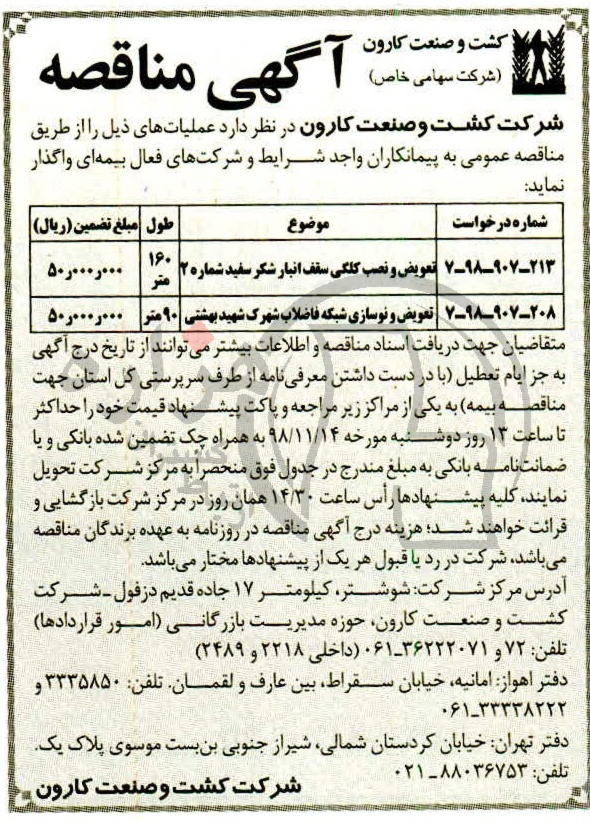 کشت و صنعت کارون
(شرکت سهامی خاص)
آگهی مناقصه
شرکت کشت و صنعت کارون در نظر دارد عملیات‌های ذیل را از طریق
مناقصه عمومی به پیمانکاران واجد شرایط و شرکت‌های فعال بیمه‌ای واگذار
نماید:
شماره درخواست موضوع طول مبلغ تضمین (ریال)
۷-۹۸-۹۰۷-۲۱۳ تعویض و نصب کلگی سقف انبار شکر سفید شماره ۲ ۱۶۰ متر ۵۰ر۰۰۰ر۰۰۰
۷-۹۸-۹۰۷-۲۰۸ تعویض و نوسازی شبکه فاضلاب شهرک شهید بهشتی ۹۰ متر ۵۰ر۰۰۰ر۰۰۰
متقاضیان جهت دریافت اسناد مناقصه و اطلاعات بیشتر می‌توانند از تاریخ درج آگهی
به جز ایام تعطیل (با در دست داشتن معرفی‌نامه از طرف سرپرستی کل استان جهت
مناقصه بیمه) به یکی از مراکز زیر مراجعه و پاکت پیشنهاد قیمت خود را حداکثر
تا ساعت ۱۳ روز دوشنبه مورخه ۹۸/۱۱/۱۴ به همراه چک تضمین شده بانکی و یا
ضمانت‌نامه بانکی به مبلغ مندرج در جدول فوق منحصراً به مرکز شرکت تحویل
نمایند، کلیه پیشنهادها رأس ساعت ۱۴/۳۰ همان روز در مرکز شرکت بازگشایی و
قرائت خواهند شد؛ هزینه درج آگهی مناقصه در روزنامه به عهده برندگان مناقصه
می‌باشد، شرکت در رد یا قبول هر یک از پیشنهادها مختار می‌باشد.
آدرس مرکز شرکت: شوشتر، کیلومتر ۱۷ جاده قدیم دزفول ـ شرکت
کشت و صنعت کارون، حوزه مدیریت بازرگانی (امور قراردادها)
تلفن: ۷۲ و ۳۶۲۲۲۰۷۱-۰۶۱ (داخلی ۲۲۱۸ و ۲۴۸۹)
دفتر اهواز: امانیه، خیابان سقراط، بین عارف و لقمان. تلفن: ۳۳۳۵۸۵۰ و
۰۶۱-۳۳۳۳۸۲۲۲
دفتر تهران: خیابان کردستان شمالی، شیراز جنوبی بن‌بست موسوی پلاک یک.
تلفن: ۸۸۰۳۶۷۵۳-۰۲۱
شرکت کشت و صنعت کارون